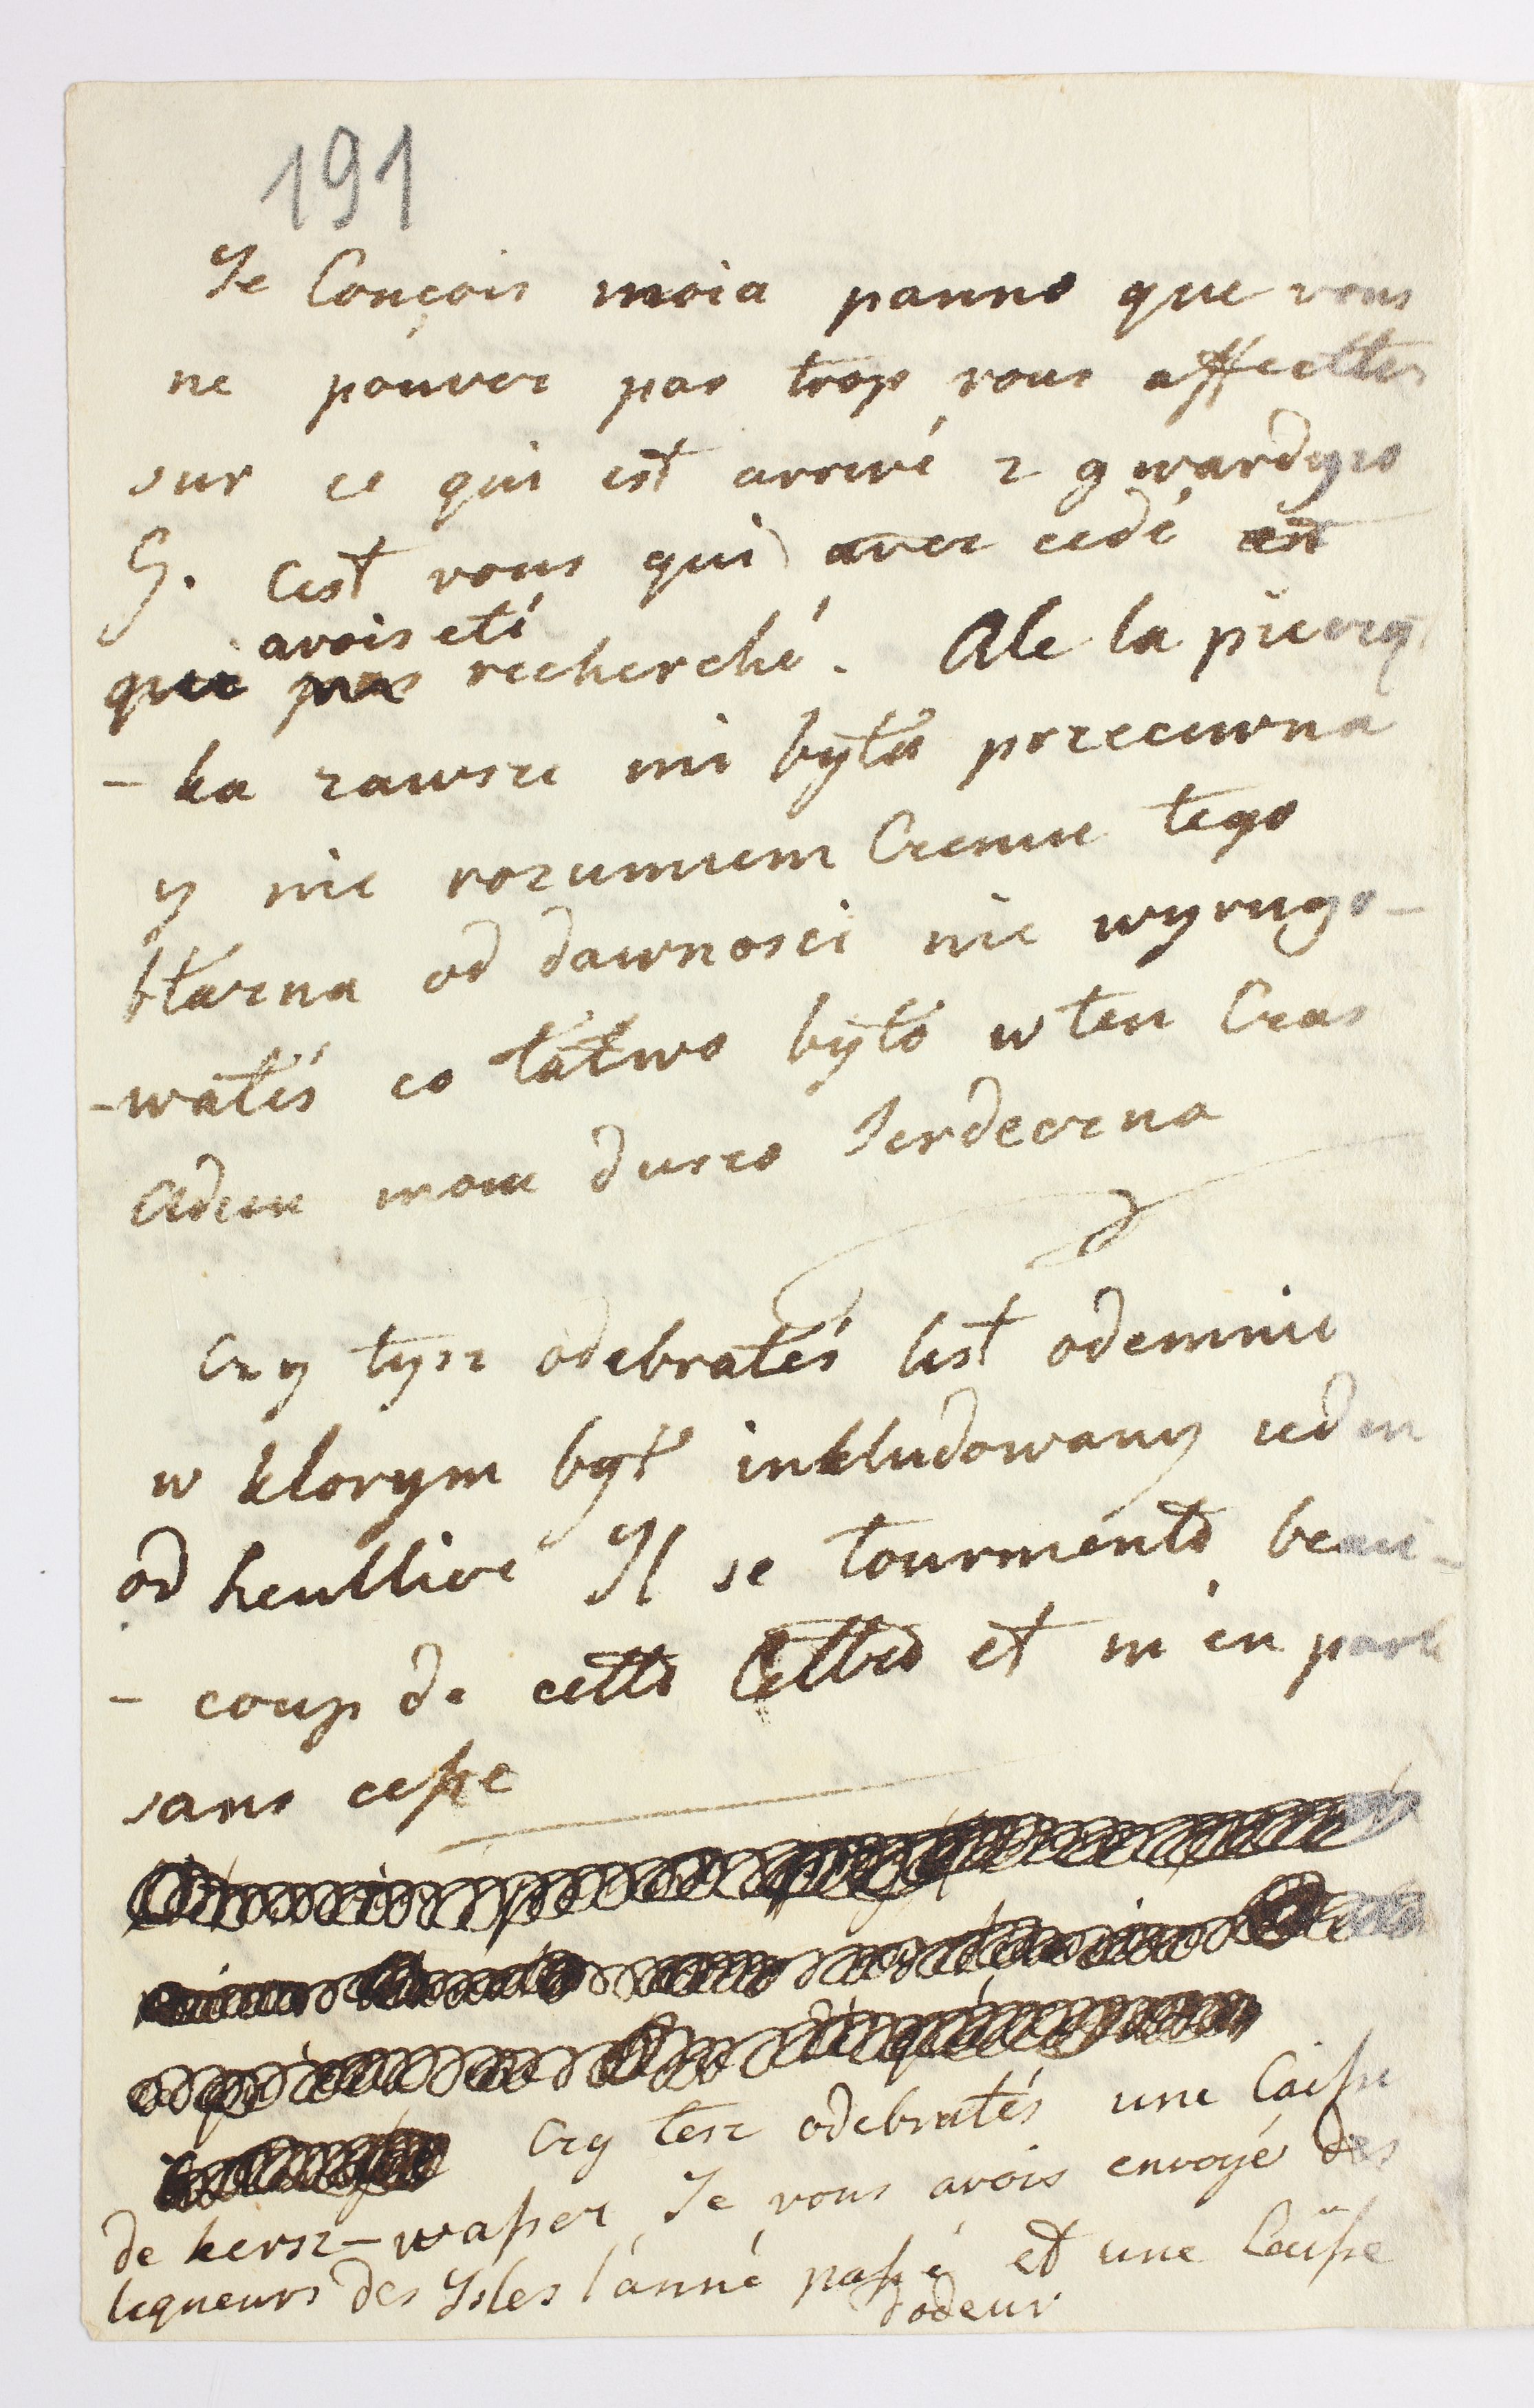 191
Je Conçois moia panno que vous
ne pouvez pas trop vous affectter
sur ce qui est arrivé z gwardyio
G. Cest vous qui avez cedé et
avois eté
qui recherché. Ale la piecząt
- ka zawsze mi byla przeciwna
y nie rozumiem Czemu tego
błazna od dawnosci nie wyrugo-
-wałés co łatwo było w ten Czas
Adieu moia duszo Serdeczna
Czy tysz odebratés list odemnie
w ktorym był inkludowany ieden
od heullivé Il se tourmente beau-
- coup de cette lettre et m'en parle
sans cesse
Czy tesz odebratés une Caisse
de kersz-wasser Je vous avois envoyé des
liqueurs des Isles l'anné passé et une Caisse
dodeur